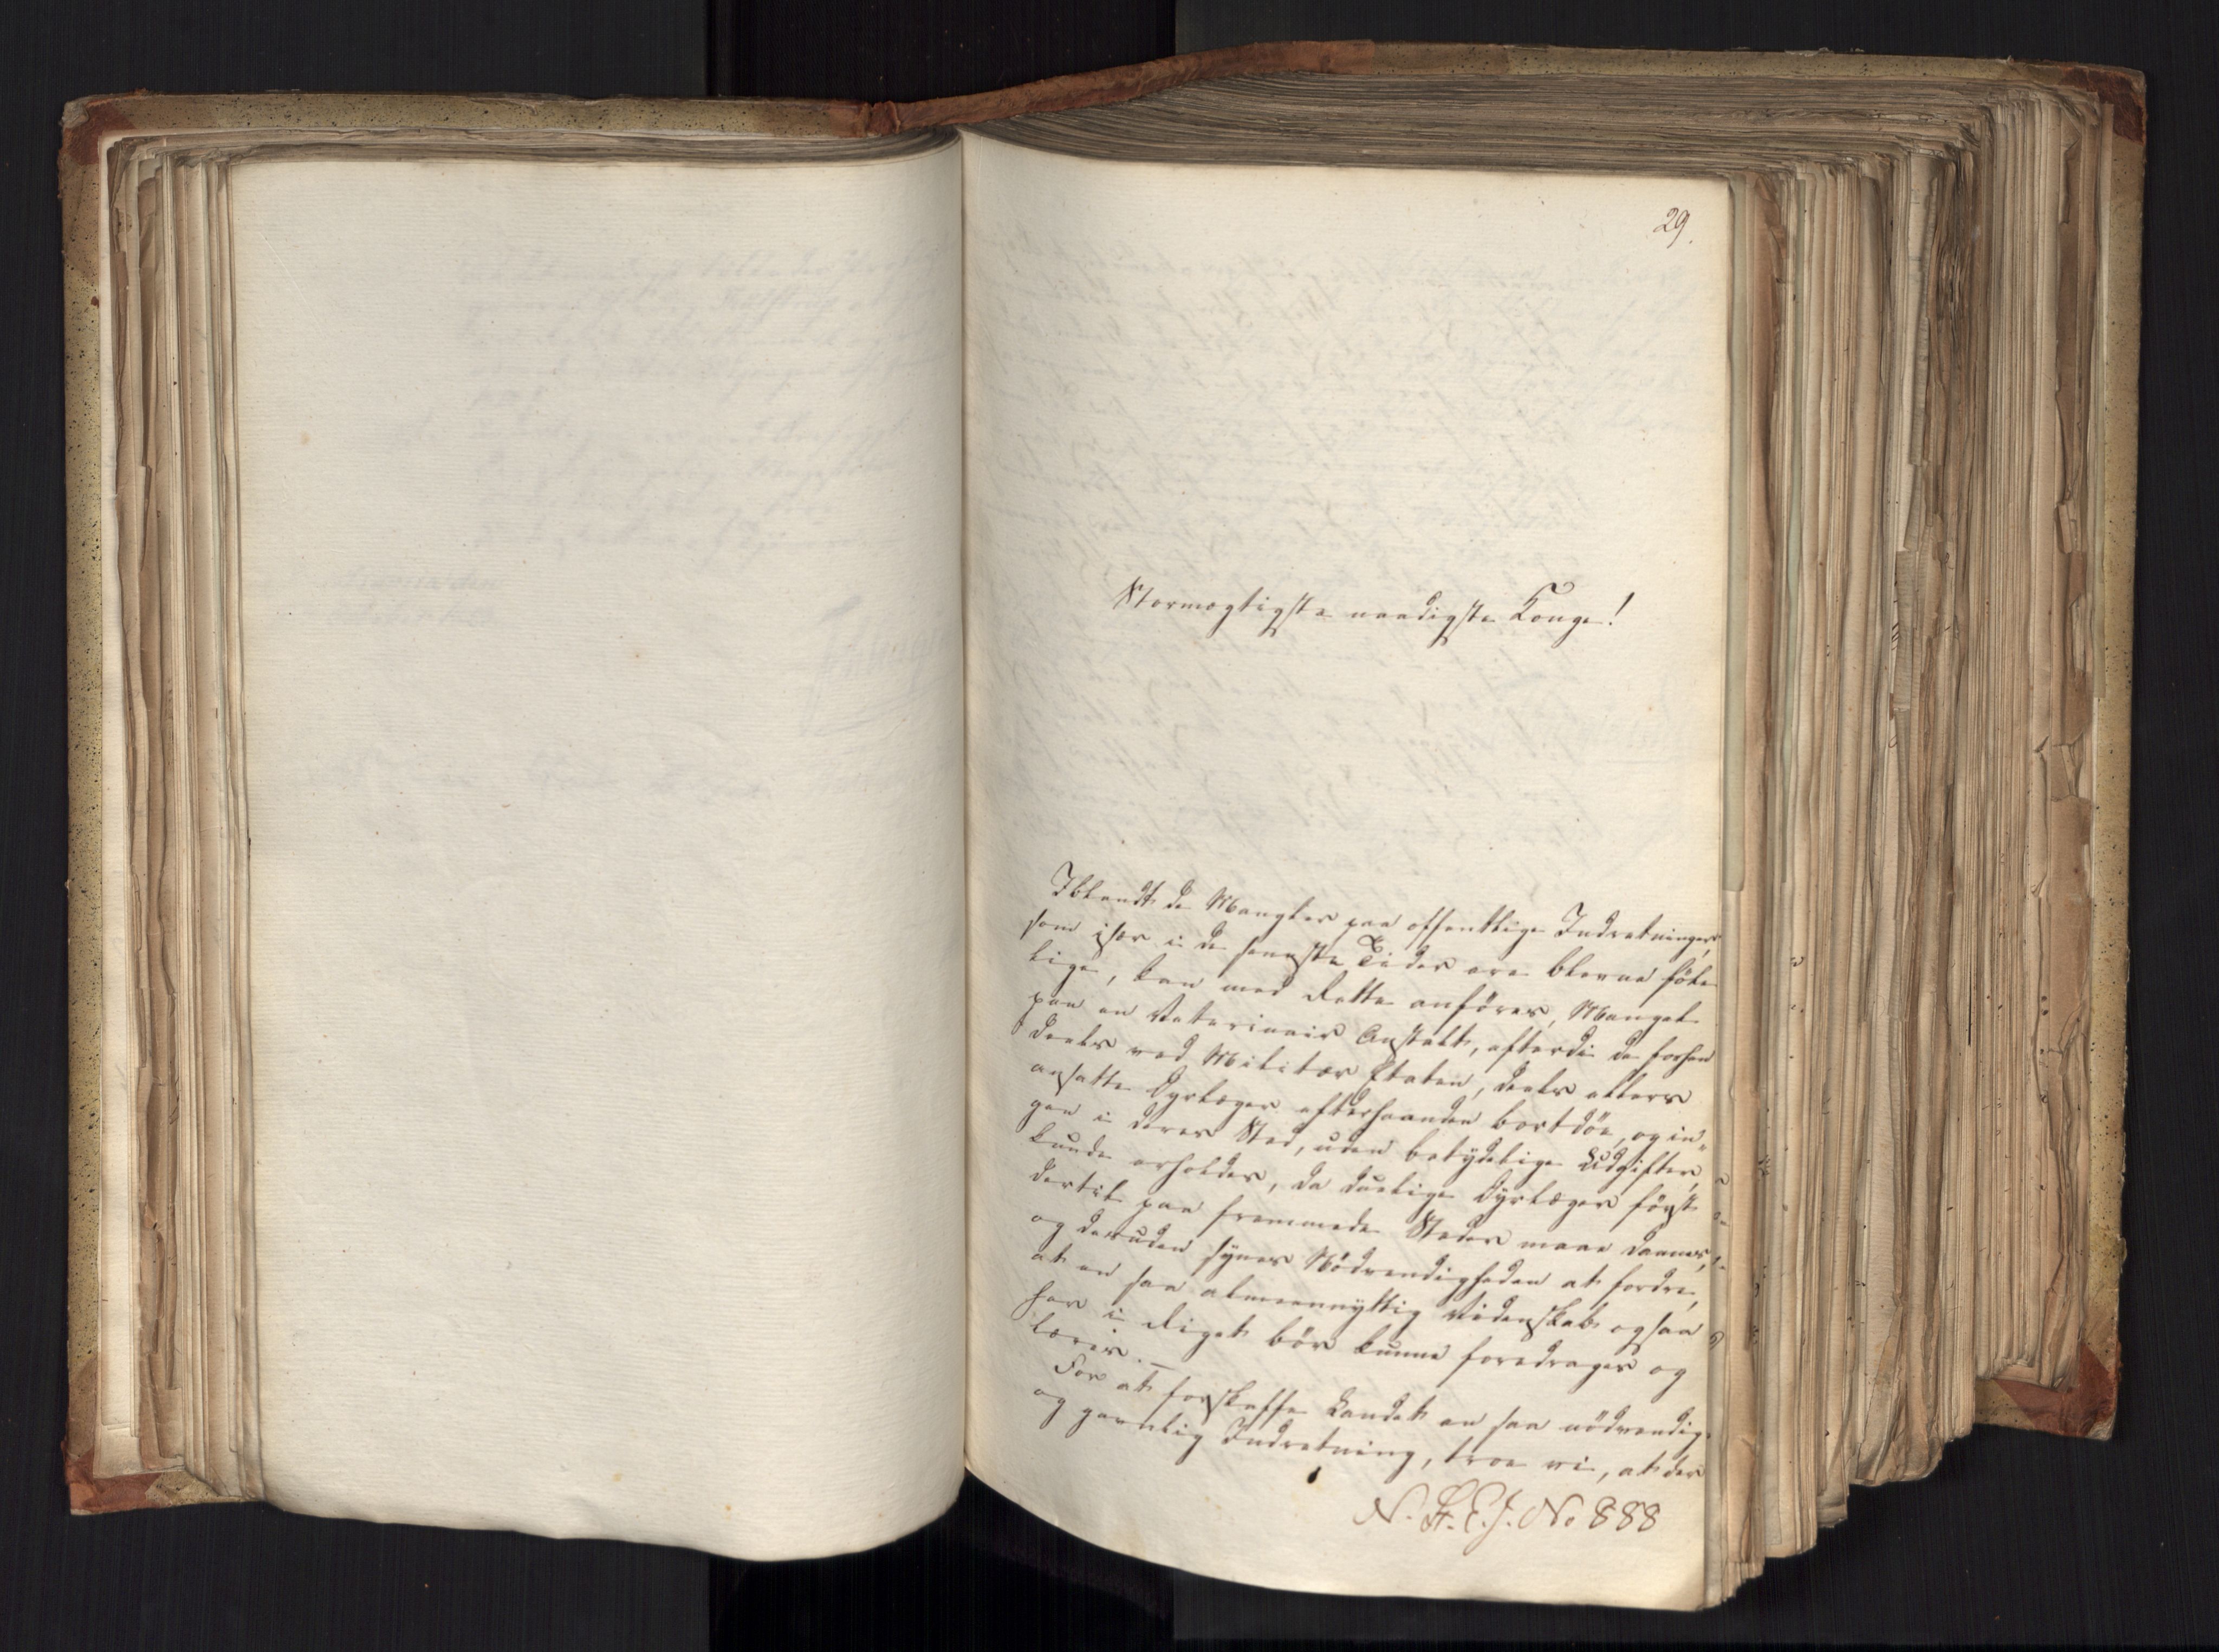 29.
Stormægtigste naadigste Konge!
Iblandt de Mangler paa offentlige Indretninger,
som især i de seneste Tider ere blevne föle-
lige, kan med dette anföres, Mangel
paa en Veterinair Anstalt, efterdi de forhen
deels ved Militær Etaten, deels ellers
ansatte Dyrlæger efterhaanden bortdöe, og in-
gen i deres Sted, uden betydelige Udgifter,
kunde erholdes, da duelige Dyrlæger först
dertil paa fremmede Steder maae dannes,
og desuden synes Nödvendigheden at fordre,
at en saa almeennyttig Videnskab ogsaa
her i Riget bör kunne foredrages og
læres. —
For at forskaffe Landet en saa nödvendig
og gavnlig Indretning, troe vi, at der
N. St. E. J. No 888